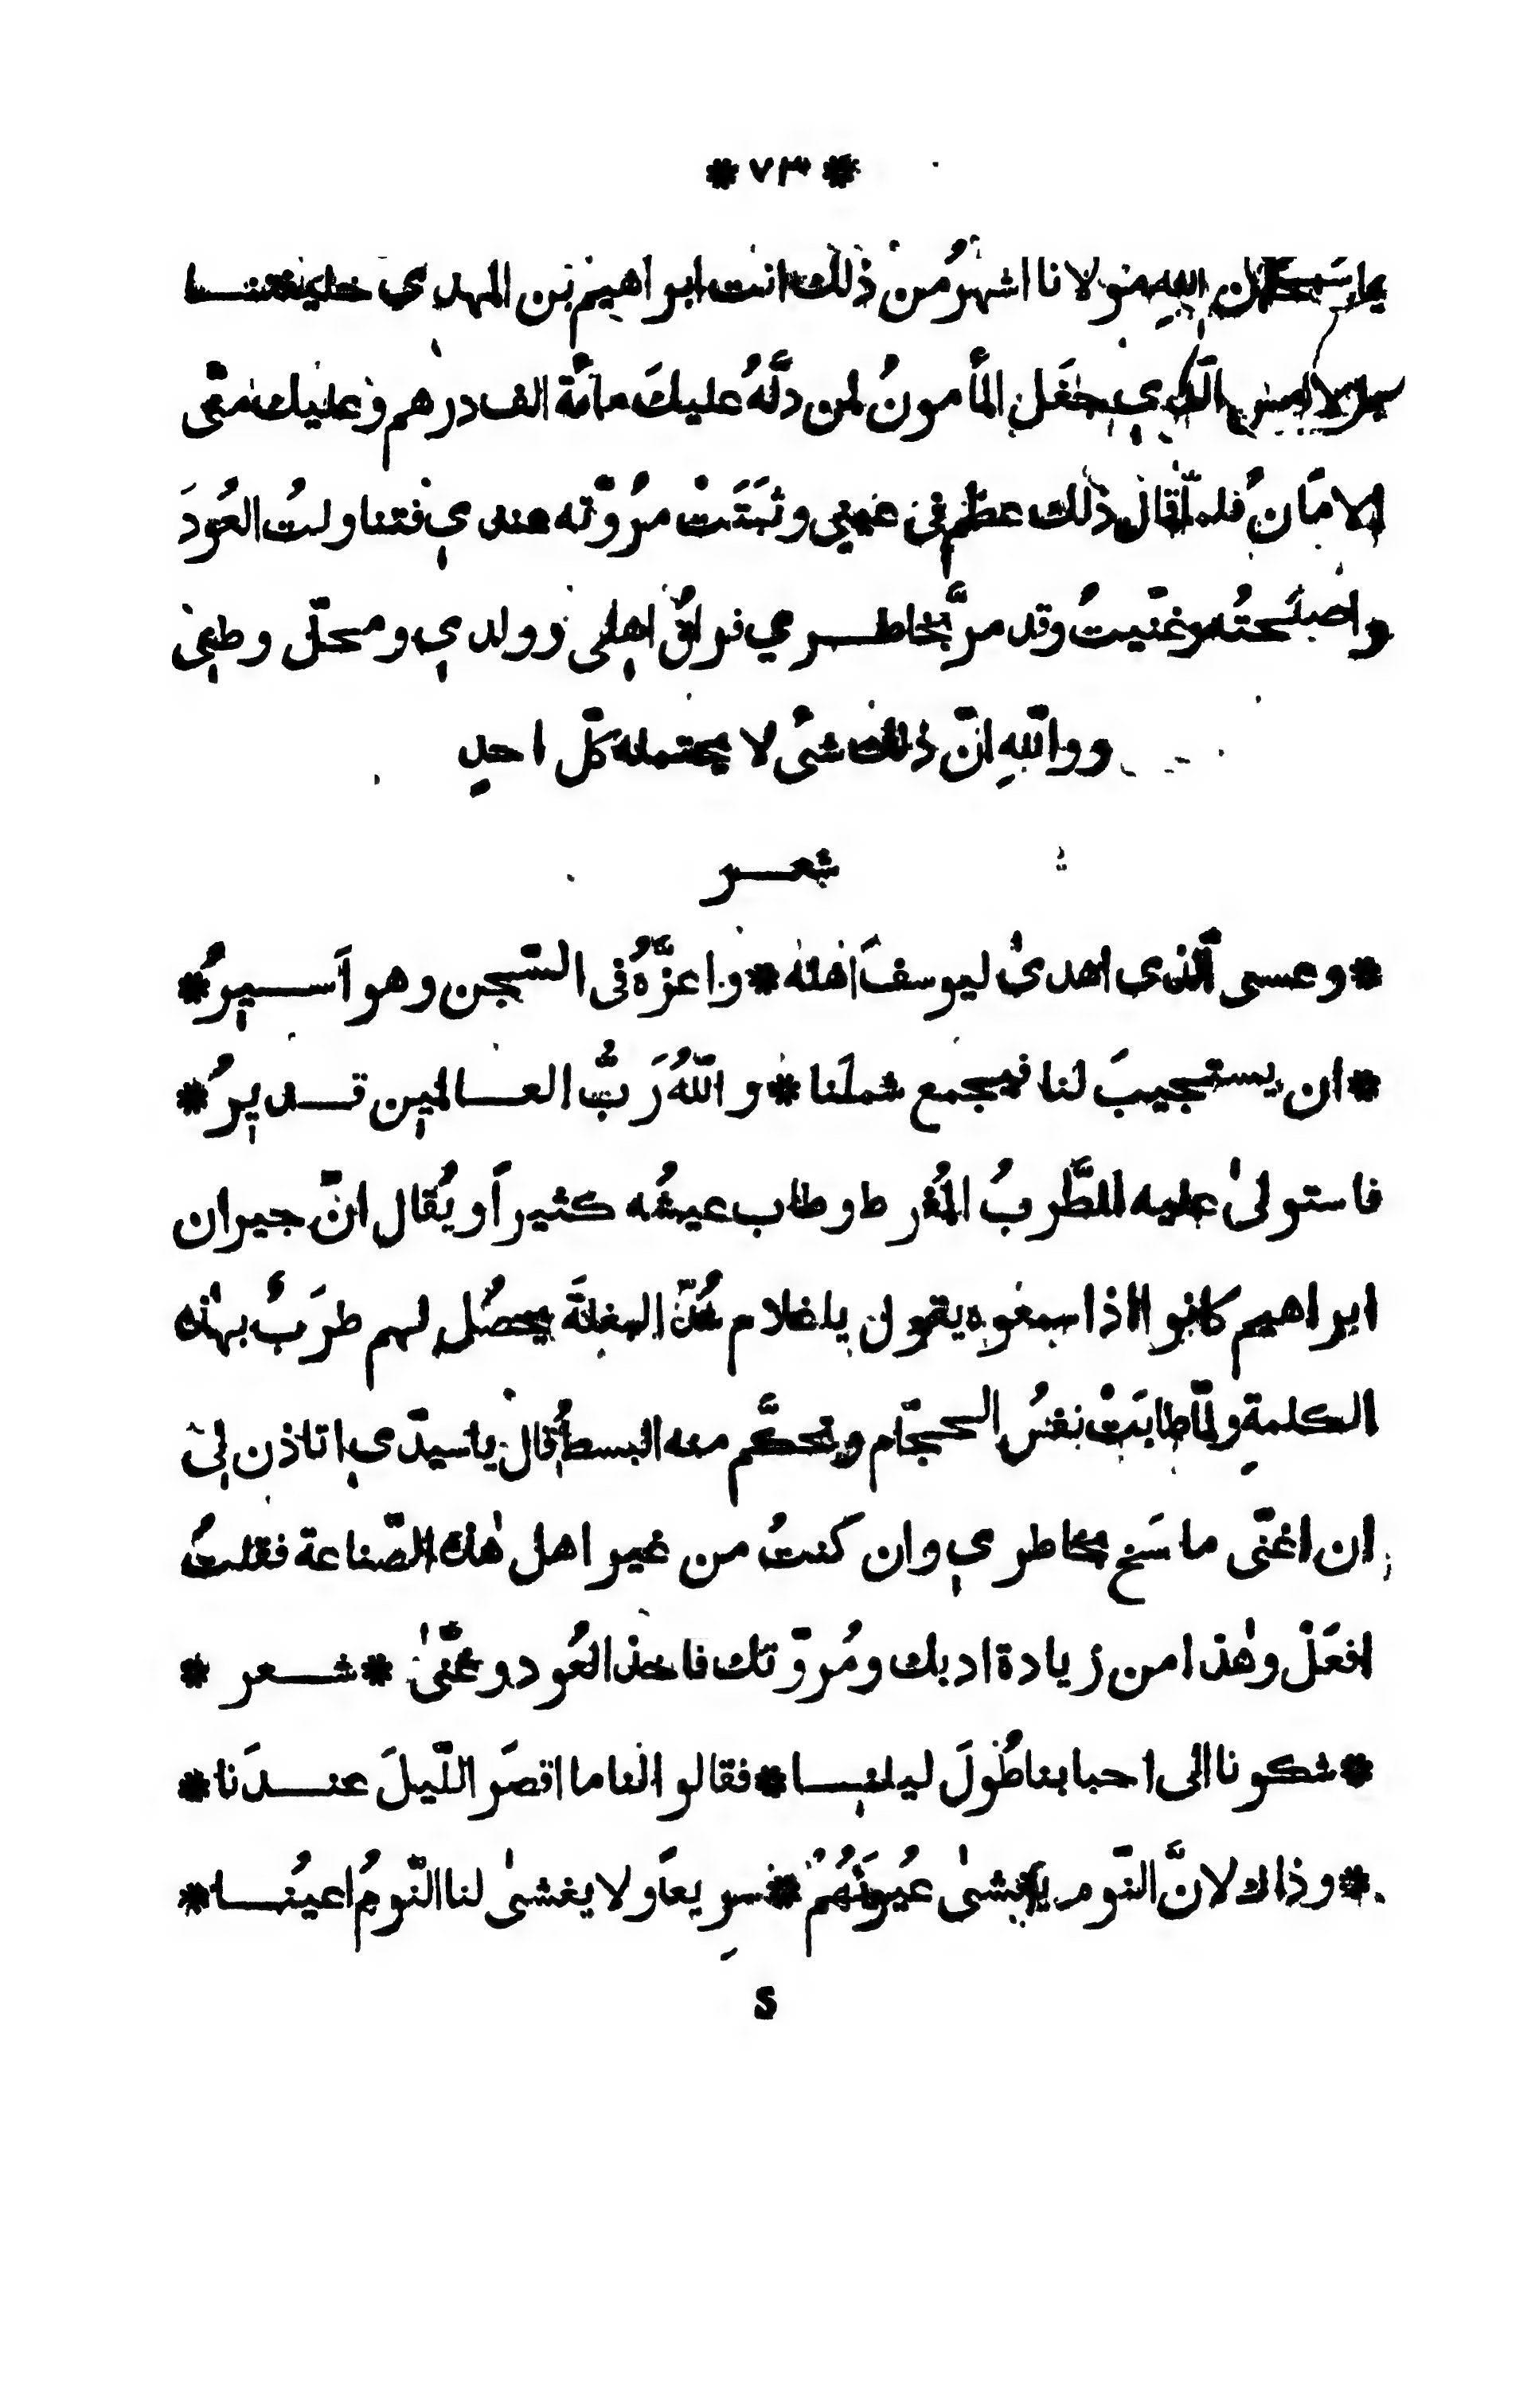 * ٧٣ *
يا سبحان الله مولانا اشهرُ من ذٰلك انت ابراهيم بن المهدي خليفتنـــا
بالامس الّذي جعَل المأمونُ لمن دلَّهُ عليكَ مائة الف درهم وعليك منّى
الامَانُ فلمّا قال ذٰلك عظُم فى عينى وثبَتَتْ مرُوّته عندي فتناولتُ العُودَ
واصلحتُه وغنّيتُ وقد مرَّ بخاطـــري فراقُ اهلى وولدي ومحلّى ووطنى
وواللهِ انّ ذٰلك شىٌ لا يحتمله كلّ احدٍ
شعـــر
* وعسى الّذى اهدىٰ ليوسفَ اهلَه * واعزّهُ فى السّجن وهو اَســيرُ *
* ان يستجيبَ لنا فيجمع شملَنا * واللهُ رَبُّ العــالمين قــديرُ *
فاستولىٰ عليه الطَّربُ المُفرط وطاب عيشُه كثيراً ويُقال انّ جيران
ابراهيم كانوا اذا سمعوه يقول يا غلام شُدّ البغلةَ يحصُل لهم طرَبٌ بهٰذه
الكلمةِ ولمّا طابَتْ نفسُ الحجّام وتحكَّم معه البسطُ قال يا سيّدي اتاذن لى
ان اغنّى ما سَنح بخاطري وان كنتُ من غير اهل هٰذه الصّناعة فقلتُ
افعَلْ وهٰذا من زيادة ادبك ومُروّتك فاخذ العُود وغنّىٰ * شـــعر *
* شكونا الى احبابنا طُولَ ليلنــا * فقالوا لنا ما اقصَر اللّيلَ عنــدَنا *
* وذاك لانَّ النّوم يغشىٰ عيُونَهُمْ * سرِيعاً ولا يغشىٰ لنا النّومُ اعيُنــا *
S